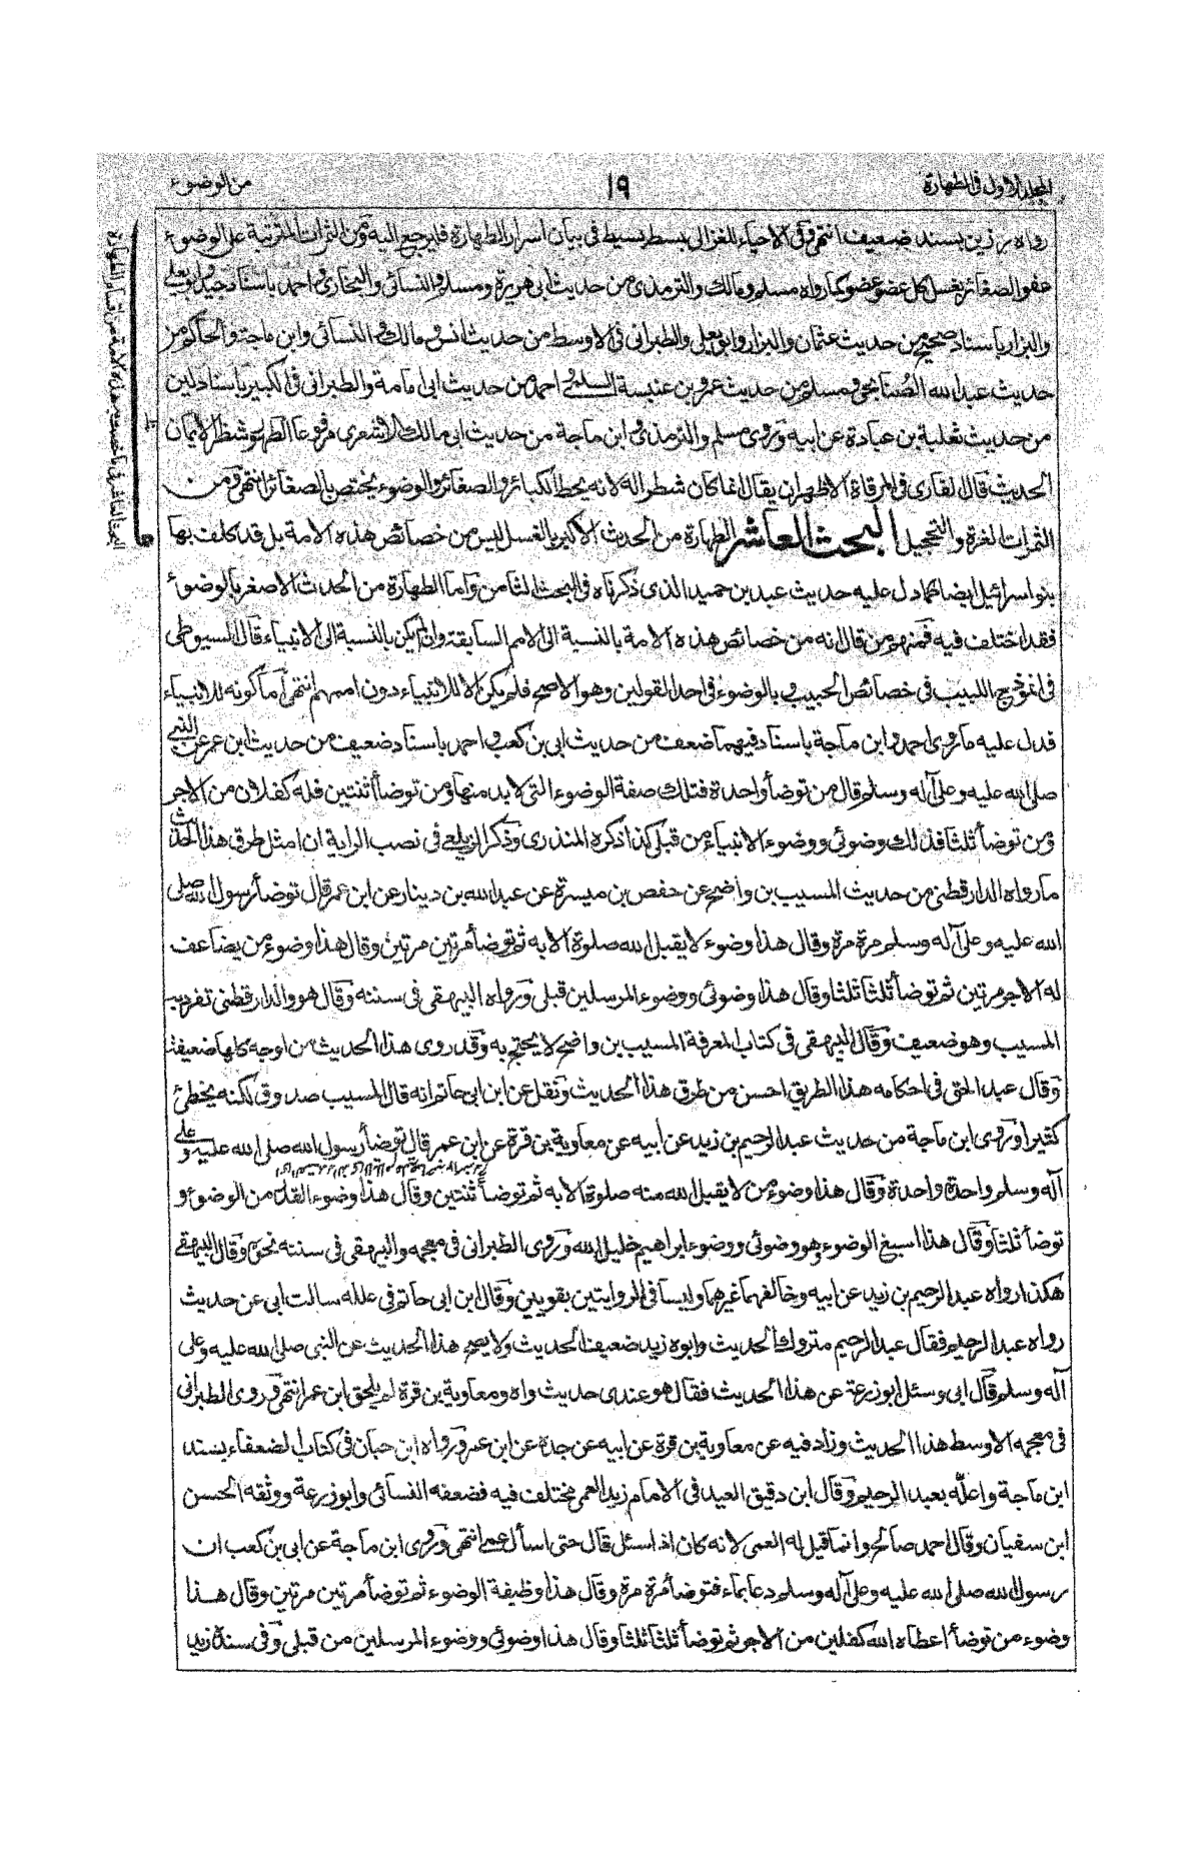 المجلد الاول فى الطهارة
١٩
من الوضوء
رواه رزين بسند ضعيف انتهى وفى الاحياء للغزالى بسط بسيط فى بيان اسرار الطهارة فليرجع اليه ومن الثمرات المترتبة على الوضوء
عفو الصغائر بغسل كل عضو عضو كما رواه مسلم ومالك والترمذى من حديث ابى هريرة ومسلم والنسائى والبخارى واحمد باسناد جيد وابو يعلى
والبزار باسناد صحيح من حديث عثمان والبزار وابو يعلى والطبرانى فى الاوسط من حديث انس ومالك والنسائى وابن ماجة والحاكم من
حديث عبد الله الصنابحى ومسلم من حديث عمرو بن عنبسة السلمى واحمد من حديث ابى امامة والطبرانى فى الكبير باسناد لين
من حديث ثعلبة بن عبادة عن ابيه وروى مسلم والترمذى وابن ماجة من حديث ابى مالك الاشعرى مرفوعا الطهور شطر الايمان
الحديث قال القارى فى المرقاة الاظهر ان يقال انما كان شطرا له لانه يحط الكبائر والصغائر والوضوء يختص بالصغائر انتهى ومن
الثمرات الغرة والتحجيل البحث العاشر الطهارة من الحدث الاكبر بالغسل ليس من خصائص هذه الامة بل قد كلف بها
بنو اسرائيل ايضا كما دل عليه حديث عبد بن حميد الذى ذكرناه فى البحث الثامن واما الطهارة من الحدث الاصغر بالوضوء
فقد اختلف فيه فمنهم من قال انه من خصائص هذه الامة بالنسبة الى الامم السابقة وان لم يكن بالنسبة الى الانبياء قال السيوطى
فى انموذج اللبيب فى خصائص الحبيب وبالوضوء فى احد القولين وهو الاصح فلم يكن الا للانبياء دون اممهم انتهى اما كونه للانبياء
فدل عليه ما روى احمد وابن ماجة باسناد فيهما ضعف من حديث ابى بن كعب واحمد باسناد ضعيف من حديث ابن عمر عن النبى
صلى الله عليه وعلى آله وسلم قال من توضأ واحدة فتلك صفة الوضوء التى لا بد منها ومن توضأ اثنتين فله كفلان من الاجر
ومن توضأ ثلثا فذلك وضوئى ووضوء الانبياء من قبلى كذا ذكره المنذرى وذكر الزيلعى فى نصب الراية ان امثل طرق هذا الحديث
ما رواه الدار قطنى من حديث المسيب بن واضح عن حفص بن ميسرة عن عبد الله بن دينار عن ابن عمر قال توضأ رسول الله صلى
الله عليه وعلى آله وسلم مرة مرة وقال هذا وضوء لا يقبل الله صلوة الا به ثم توضأ مرتين مرتين وقال هذا وضوء من يضاعف
له الاجر مرتين ثم توضأ ثلثا ثلثا وقال هذا وضوئى ووضوء المرسلين قبلى ورواه البيهقى فى سننه وقال هو والدار قطنى تفرد به
المسيب وهو ضعيف وقال البيهقى فى كتاب المعرفة المسيب بن واضح لا يحتج به وقد روى هذا الحديث من اوجه كلها ضعيفة
وقال عبد الحق فى احكامه هذا الطريق احسن من طرق هذا الحديث ونقل عن ابن ابى حاتم انه قال المسيب صدوق لكنه يخطئ
كثيرا وروى ابن ماجة من حديث عبد الرحيم بن زيد عن ابيه عن معاوية بن قرة عن ابن عمر قال توضأ رسول الله صلى الله عليه وعلى
آله وسلم واحدة واحدة وقال هذا وضوء من لا يقبل الله منه صلوة الا به ثم توضأ ثنتين وقال هذا وضوء القدر من الوضوء و
توضأ ثلثا وقال هذا اسبغ الوضوء وهو وضوئى ووضوء ابراهيم خليل الله وروى الطبرانى فى معجمه والبيهقى فى سننه نحوه وقال البيهقى
هكذا رواه عبد الرحيم بن زيد عن ابيه وخالفهما غيرهما وليسا فى الروايتين بقويين وقال ابن ابى حاتم فى علله سالت ابى عن حديث
رواه عبد الرحيم فقال عبد الرحيم متروك الحديث وابوه زيد ضعيف الحديث ولا يصح هذا الحديث عن النبى صلى الله عليه وعلى
آله وسلم قال ابى وسئل ابو زرعة عن هذا الحديث فقال هو عندى حديث واه ومعاوية بن قرة لم يلحق ابن عمر انتهى وروى الطبرانى
فى معجمه الاوسط هذا الحديث وزاد فيه عن معاوية بن قرة عن ابيه عن جده عن ابن عمر ورواه ابن حبان فى كتاب الضعفاء بسند
ابن ماجة واعله بعبد الرحيم وقال ابن دقيق العيد فى الامام زيد العمى مختلف فيه فضعفه النسائى وابو زرعة ووثقه الحسن
ابن سفيان وقال احمد صالح وانما قيل له العمى لانه كان اذا سئل قال حتى اسأل عمى انتهى وروى ابن ماجة عن ابى بن كعب ان
رسول الله صلى الله عليه وعلى آله وسلم دعا بماء فتوضأ مرة مرة وقال هذا وظيفة الوضوء ثم توضأ مرتين مرتين وقال هذا
وضوء من توضأ اعطاه الله كفلين من الاجر ثم توضأ ثلثا ثلثا وقال هذا وضوئى ووضوء المرسلين من قبلى وفى سنده زيد